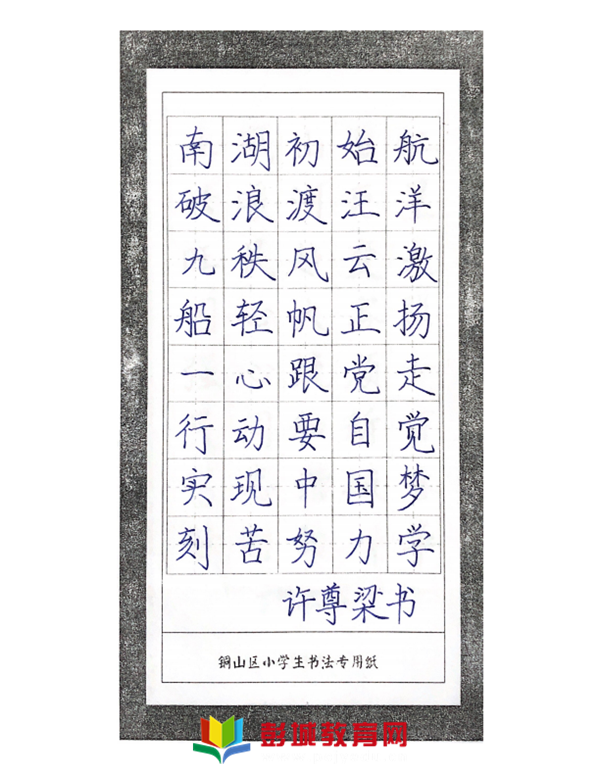 南湖初始航
破浪渡汪洋
九秩风云激
船轻帆正扬
一心跟党走
行动要自觉
实现中国梦
刻苦努力学
许尊梁书
铜山区小学生书法专用纸
彭城教育网